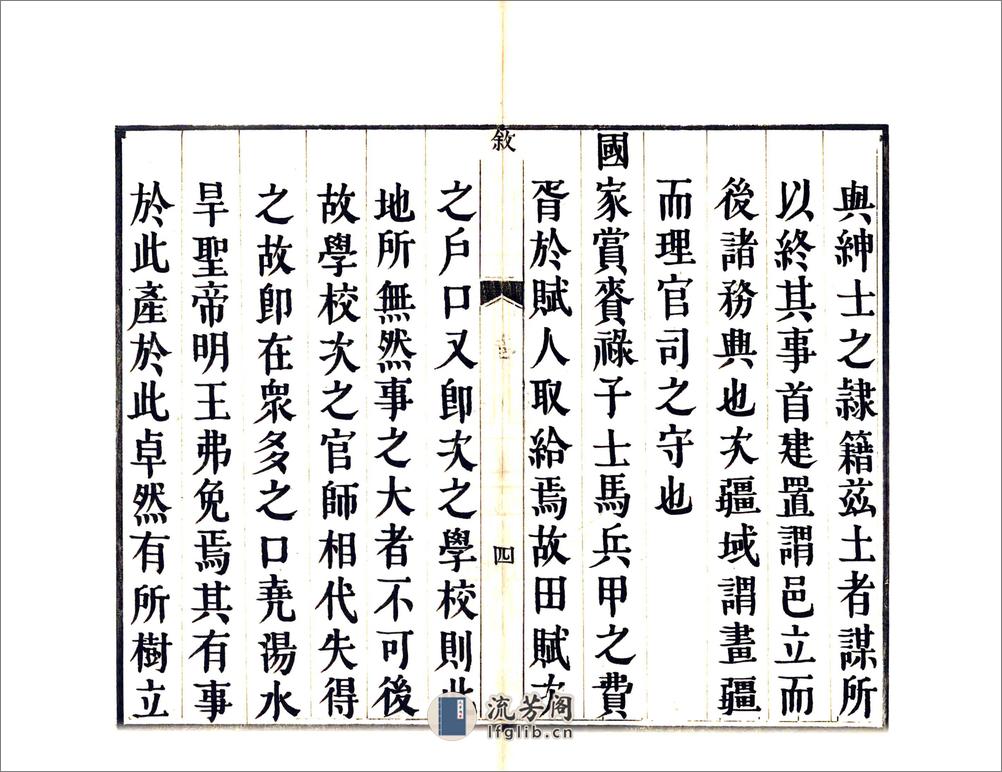 與紳士之隷籍茲土者謀所
以終其事首建置謂邑立而
後諸務典也次疆域謂畫疆
而理官司之守也
國家賞賚祿子士馬兵甲之費
胥於賦人取給焉故田賦次
敘
四
之戶口又卽次之學校則此
地所無然事之大者不可後
故學校次之官師相代失得
之故卽在衆多之口堯湯水
旱聖帝明王弗免焉其有事
於此產於此卓然有所樹立
流芳阁
lfglib.cn